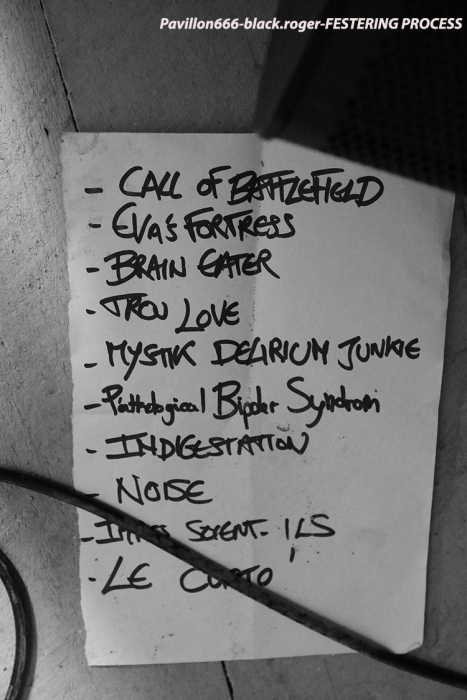 Pavillon666-black.roger-FESTERING PROCESS
- CALL OF BATTLEFIELD
- EVA'S FORTRESS
- BRAIN EATER
- TROU LOVE
- MYSTIK DELIRIUM JUNKIE
- Pathological Bipolar Syndrom
- INDIGESTATION
- NOISE
- SOIENT-ILS
- LE CURTO